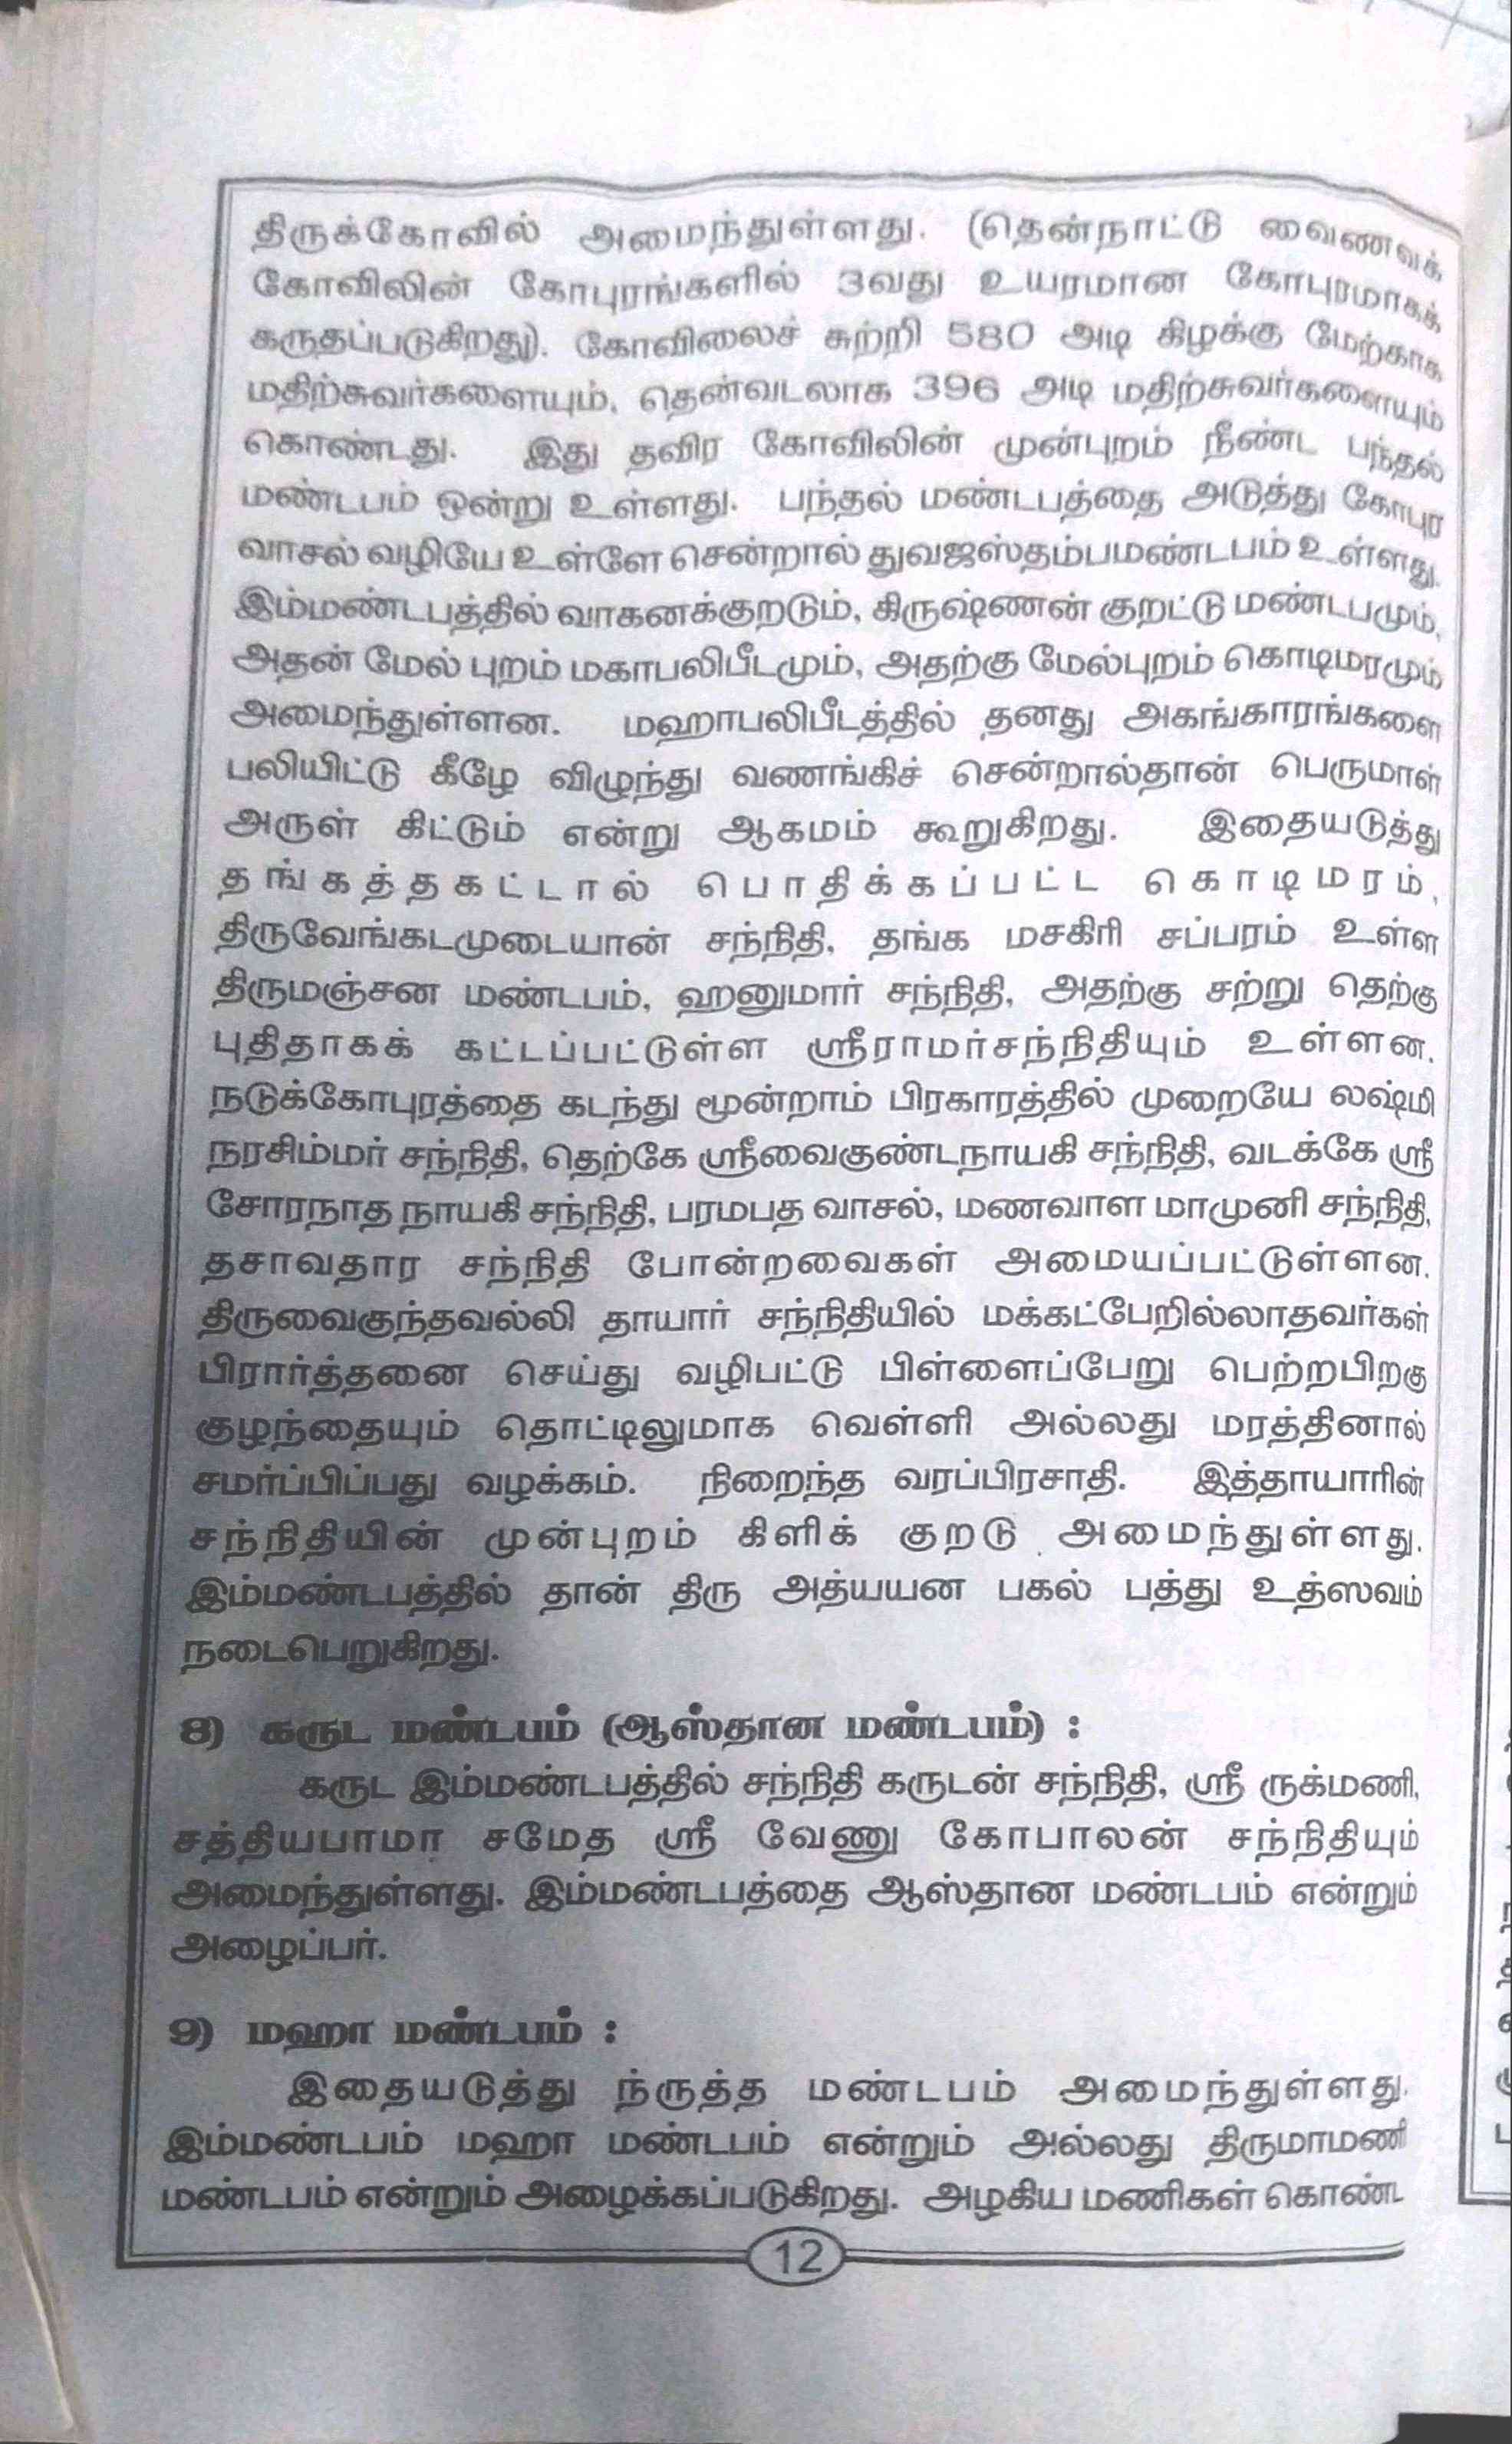 திருக்கோவில் அமைந்துள்ளது. (தென்நாட்டு வைணவக்
கோவிலின் கோபுரங்களில் 3வது உயரமான கோபுரமாகக்
கருதப்படுகிறது). கோவிலைச் சுற்றி 580 அடி கிழக்கு மேற்காக
மதிற்சுவர்களையும், தென்வடலாக 396 அடி மதிற்சுவர்களையும்
கொண்டது. இது தவிர கோவிலின் முன்புறம் நீண்ட பந்தல்
மண்டபம் ஒன்று உள்ளது. பந்தல் மண்டபத்தை அடுத்து கோபுர
வாசல் வழியே உள்ளே சென்றால் துவஜஸ்தம்பமண்டபம் உள்ளது.
இம்மண்டபத்தில் வாகனக்குறடும், கிருஷ்ணன் குறட்டு மண்டபமும்,
அதன் மேல் புறம் மகாபலிபீடமும், அதற்கு மேல்புறம் கொடிமரமும்
அமைந்துள்ளன. மஹாபலிபீடத்தில் தனது அகங்காரங்களை
பலியிட்டு கீழே விழுந்து வணங்கிச் சென்றால்தான் பெருமாள்
அருள் கிட்டும் என்று ஆகமம் கூறுகிறது. இதையடுத்து
தங்கத்தகட்டால் பொதிக்கப்பட்ட கொடிமரம்,
திருவேங்கடமுடையான் சந்நிதி, தங்க மசகிரி சப்பரம் உள்ள
திருமஞ்சன மண்டபம், ஹனுமார் சந்நிதி, அதற்கு சற்று தெற்கு
புதிதாகக் கட்டப்பட்டுள்ள ஸ்ரீராமர்சந்நிதியும் உள்ளன.
நடுக்கோபுரத்தை கடந்து மூன்றாம் பிரகாரத்தில் முறையே லஷ்மி
நரசிம்மர் சந்நிதி, தெற்கே ஸ்ரீவைகுண்டநாயகி சந்நிதி, வடக்கே ஸ்ரீ
சோரநாத நாயகி சந்நிதி, பரமபத வாசல், மணவாள மாமுனி சந்நிதி,
தசாவதார சந்நிதி போன்றவைகள் அமையப்பட்டுள்ளன.
திருவைகுந்தவல்லி தாயார் சந்நிதியில் மக்கட்பேறில்லாதவர்கள்
பிரார்த்தனை செய்து வழிபட்டு பிள்ளைப்பேறு பெற்றபிறகு
குழந்தையும் தொட்டிலுமாக வெள்ளி அல்லது மரத்தினால்
சமர்ப்பிப்பது வழக்கம். நிறைந்த வரப்பிரசாதி. இத்தாயாரின்
சந்நிதியின் முன்புறம் கிளிக் குறடு அமைந்துள்ளது.
இம்மண்டபத்தில் தான் திரு அத்யயன பகல் பத்து உத்ஸவம்
நடைபெறுகிறது.
8) கருட மண்டபம் (ஆஸ்தான மண்டபம்) :
கருட இம்மண்டபத்தில் சந்நிதி கருடன் சந்நிதி, ஸ்ரீ ருக்மணி,
சத்தியபாமா சமேத ஸ்ரீ வேணு கோபாலன் சந்நிதியும்
அமைந்துள்ளது. இம்மண்டபத்தை ஆஸ்தான மண்டபம் என்றும்
அழைப்பர்.
9) மஹா மண்டபம் :
இதையடுத்து ந்ருத்த மண்டபம் அமைந்துள்ளது.
இம்மண்டபம் மஹா மண்டபம் என்றும் அல்லது திருமாமணி
மண்டபம் என்றும் அழைக்கப்படுகிறது. அழகிய மணிகள் கொண்ட
12